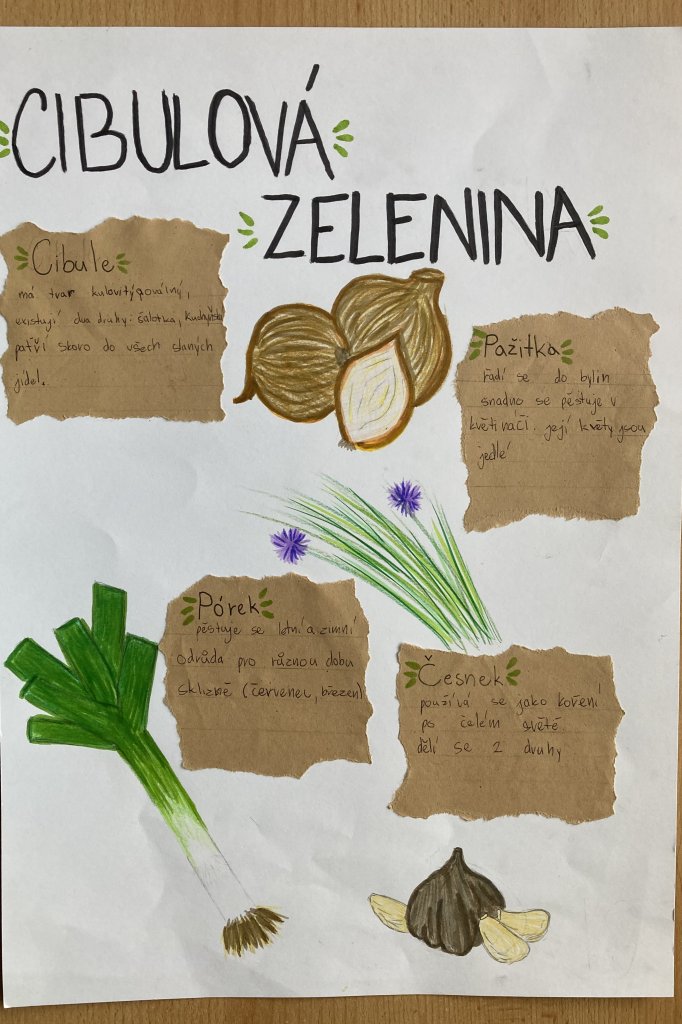 CIBULOVÁ
ZELENINA
Cibule
má tvar kulovitý, oválný,
existují dva druhy: šalotka,
patří skoro do všech slaných
jídel.
Pažitka
řadí se do bylin
snadno se pěstuje v
květináčí. její květy jsou
jedlé
Pórek
pěstuje se letní a zimní
odrůda pro různou dobu
sklizně (červenec, březen)
Česnek
používá se jako koření
po celém světě.
dělí se 2 druhy